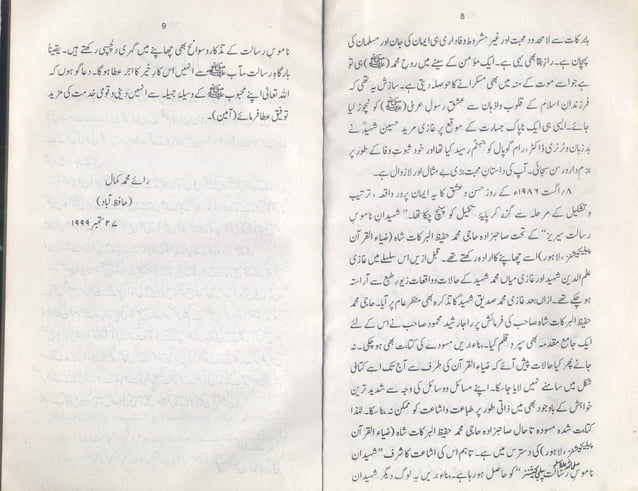 8
بابرکات سے لامحدود محبت اور غیر مشروط وفاداری ہی ایمان کی جان اور مسلمان کی
پہچان ہے۔ راز بقا بھی یہی ہے۔ ایک مؤمن کے سینے میں روح محمد (ﷺ) ہی تو
ہے جو اسے موت کے منہ میں بھی مسکرانے کا حوصلہ دیتی ہے۔ سازش یہ تھی کہ
فرزندان اسلام کے قلوب و اذہان سے عشق رسول عربی (ﷺ) کو نچوڑ لیا
جائے۔ ایسی ہی ایک ناپاک جسارت کے موقع پر غازی مرید حسین شہیدؒ نے
بدزبان وٹرنری ڈاکٹر، رام گوپال کو جہنم رسید کیا تھا اور خود ثبوت وفا کے طور پر
بزم دار و رسن سجائی۔ آپ کی داستان محبت بڑی بے مثال اور لازوال ہے۔
۸ اگست ۱۹۸۶ء کے روز حسن و عشق کا یہ ایمان پرور واقعہ، ترتیب
و تشکیل کے مرحلہ سے گذر کر پایہ تکمیل کو پہنچ چکا تھا۔ "شہیدان ناموس
رسالت سیریز" کے تحت صاحبزادہ حاجی محمد حفیظ البرکات شاہ (ضیاء القرآن
پبلیکیشنز، لاہور) اسے چھاپنے کا ارادہ رکھتے تھے۔ قبل ازیں اس سلسلے میں غازی
علم الدین شہید اور غازی میاں محمد شہید کے حالات و واقعات زیور طبع سے آراستہ
ہو چکے تھے۔ ازاں بعد غازی محمد صدیق شہیدؒ کا تذکرہ بھی منظر عام پر آیا۔ حاجی محمد
حفیظ البرکات شاہ صاحب کی فرمائش پر راجا رشید محمود صاحب نے اس کے لئے
ایک جامع مقدمہ بھی سپرد قلم کیا۔ بناء بریں مسودے کی کتابت بھی ہو چکی۔ نہ
جانے پھر کیا حالات پیش آئے کہ ضیاء القرآن کی طرف سے آج تک اسے کتابی
شکل میں سامنے نہیں لایا جا سکا۔ اپنے مسائل و وسائل کی وجہ سے شدید ترین
خواہش کے باوجود بھی میں ذاتی طور پر طباعت و اشاعت کو ممکن نہ بنا سکا۔ لہٰذا
کتابت شدہ مسودہ تا حال صاحبزادہ حاجی محمد حفیظ البرکات شاہ (ضیاء القرآن
پبلیکیشنز، لاہور) کی دسترس میں ہے۔ تاہم اس کی اشاعت کا شرف "شہیدان
ناموس رسالت ﷺ پبلیکیشنز" کو حاصل ہو رہا ہے۔ بناء بریں یہ لوگ دیگر شہیدان
9
ناموس رسالت کے تذکار و سوانح بھی چھاپنے میں گہری دلچسپی رکھتے ہیں۔ یقیناً
بارگاہ رسالت مآب ﷺ سے انہیں اس کار خیر کا اجر عطا ہو گا۔ دعا گو ہوں کہ
اللہ تعالیٰ اپنے محبوب ﷺ کے وسیلہ جلیلہ سے انہیں دینی و قومی خدمت کی مزید
توفیق عطا فرمائے (آمین)۔
رائے محمد کمال
(حافظ آباد)
۲۷ ستمبر ۱۹۹۹